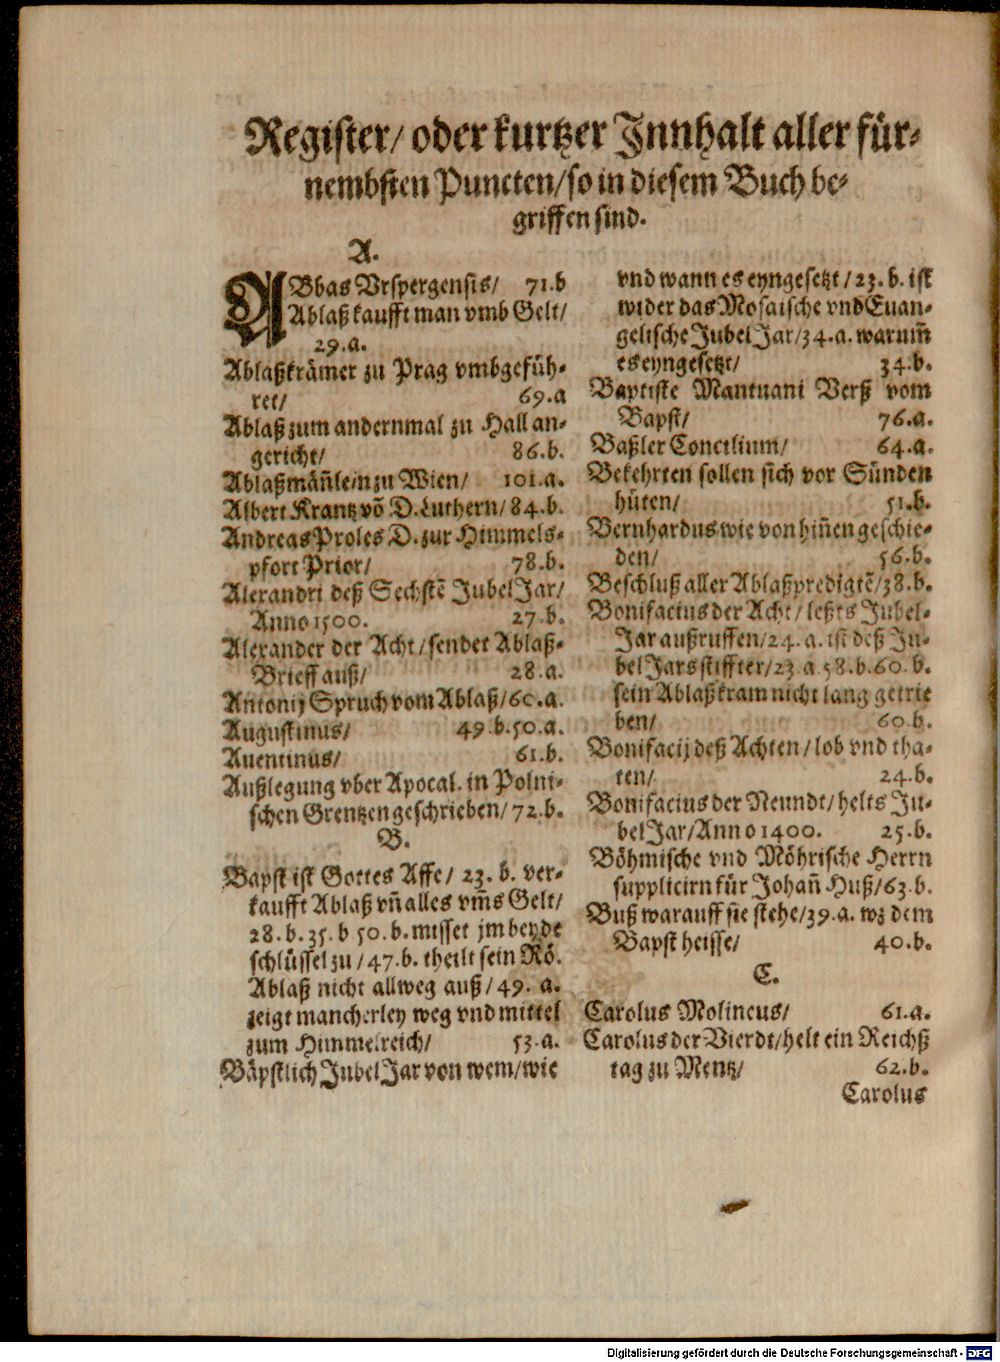 Register/ oder kurtzer Innhalt aller für-
nembsten Puncten/ so in diesem Buch be-
griffen sind.
A.
ABbas Vrspergensis/ 71.b
Ablaß kaufft man vmb Gelt/
29.a.
Ablaßkrämer zu Prag vmbgefüh-
ret/ 69.a
Ablaß zum andernmal zu Hall an-
gericht/ 86.b.
Ablaßmäñlein zu Wien/ 101.a.
Albert Krantz võ D. Luthern/ 84.b.
Andreas Proles D. zur Himmels-
pfort Prior/ 78.b.
Alexandri deß Sechstẽ JubelJar/
Anno 1500. 27.b.
Alexander der Acht/ sendet Ablaß-
Brieff auß/ 28.a.
Antonij Spruch vom Ablaß/ 60.a.
Augustinus/ 49.b.50.a.
Auentinus/ 61.b.
Außlegung vber Apocal. in Polni-
schen Grentzen geschrieben/ 72.b.
B.
Bapst ist Gottes Affe/ 23. b. ver-
kaufft Ablaß vñ alles vm̃s Gelt/
28.b.35.b 50.b. misset jm beyde
schlüssel zu/ 47.b. theilt sein Rö.
Ablaß nicht allweg auß/ 49. a.
zeigt mancherley weg vnd mittel
zum Himmelreich/ 53.a.
Bäpstlich JubelJar von wem/ wie
vnd wann es eyngesetzt/ 23. b. ist
wider das Mosaische vnd Euan-
gelische JubelJar/ 34.a. warum̃
es eyngesetzt/ 34.b.
Baptiste Mantuani Verß vom
Bapst/ 76.a.
Baßler Concilium/ 64.a.
Bekehrten sollen sich vor Sünden
hüten/ 51.b.
Bernhardus wie von hiñen geschie-
den/ 56.b.
Beschluß aller Ablaßpredigtẽ/ 38.b.
Bonifacius der Acht/ leßts Jubel-
Jar außruffen/ 24. a. ist deß Ju-
belJars stiffter/ 23.a.58.b.60.b.
sein Ablaßkram nicht lang getrie
ben/ 60.b.
Bonifacij deß Achten/ lob vnd tha-
ten/ 24.b.
Bonifacius der Neundt/ helts Ju-
belJar/ Anno 1400. 25.b.
Böhmische vnd Möhrische Herrn
supplicirn für Johañ Huß/ 63.b.
Buß warauff sie stehe/ 39.a. wz dem
Bapst heisse/ 40.b.
C.
Carolus Molineus/ 61.a.
Carolus der Vierdt/ helt ein Reichß
tag zu Mentz/ 62.b.
Carolus
Digitalisierung gefördert durch die Deutsche Forschungsgemeinschaft - DFG